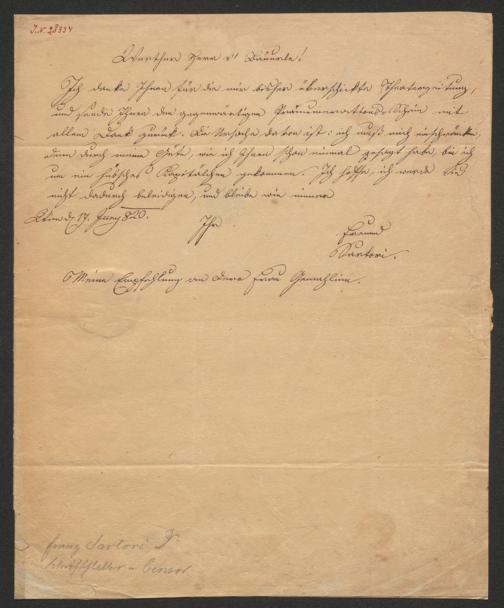 J.N. 28334
Werther Herr v. Bäuerle!
Ich danke Ihnen für die mir bisher überschickte Theaterzeitung,
und sende Ihnen den gegenwärtigen Pränumerations-Schein mit
allem Dank zurück. Die Ursache davon ist: ich muß mich einschränken,
denn durch meine Güte, wie ich Ihnen schon einmal gesagt habe, bin ich
um ein hübsches Kapitälchen gekommen. Ich hoffe, ich werde Sie
nicht dadurch beleidigen, und bleibe wie immer
Wien d. 17. Juny 820.
Ihr
Freund
Sartori.
Meine Empfehlung an dero Frau Gemahlinn.
Franz Sartori Dr.
Schriftsteller u Censor